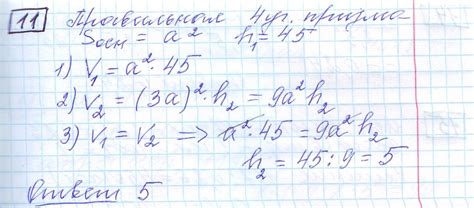 11 Правильная 4уг. призма
Sосн = a² h₁ = 45
1) V₁ = a² · 45
2) V₂ = (3a)² · h₂ = 9a² h₂
3) V₁ = V₂ ⟹ a² · 45 = 9a² h₂
h₂ = 45 : 9 = 5
Ответ 5